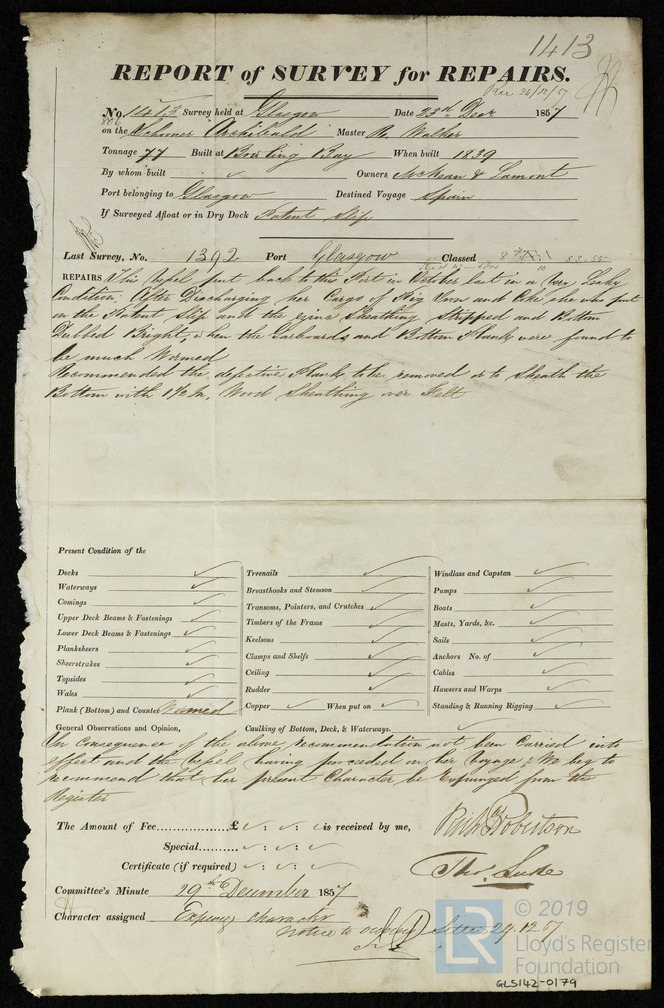 1413
REPORT of SURVEY for REPAIRS.
Rec 26/12/57
No. 1413 Survey held at Glasgow Date 23rd Decr 1857
on the Schooner Archibald Master R. Walker
Tonnage 77 Built at Bowling Bay When built 1839
By whom built ✓ Owners McKean & Lamont
Port belonging to Glasgow Destined Voyage Spain
If Surveyed Afloat or in Dry Dock Patent Slip
Last Survey, No. 1392 Port Glasgow Classed
REPAIRS. This Vessel put back to this Port in October last in a very Leaky
Condition, After Discharging her Cargo of Pig Iron and Coke she was put
on the Patent Slip and the Sheathing Stripped and Bottom
Dubbed Bright, when the Garboards and Bottom Planks were found to
be much Wormed
Recommended the defective Planks to be removed or to Sheath the
Bottom with 1½ In, Wood Sheathing over Felt
Present Condition of the
Decks ✓
Waterways ✓
Comings ✓
Upper Deck Beams & Fastenings ✓
Lower Deck Beams & Fastenings ✓
Planksheers ✓
Sheerstrakes ✓
Topsides ✓
Wales ✓
Plank (Bottom) and Counter Wormed
Treenails ✓
Breasthooks and Stemson ✓
Transoms, Pointers, and Crutches ✓
Timbers of the Frame ✓
Keelsons ✓
Clamps and Shelfs ✓
Ceiling ✓
Rudder ✓
Copper ✓ When put on ✓
Windlass and Capstan ✓
Pumps ✓
Boats ✓
Masts, Yards, &c. ✓
Sails ✓
Anchors No. of ✓
Cables ✓
Hawsers and Warps ✓
Standing & Running Rigging ✓
General Observations and Opinion, Caulking of Bottom, Deck, & Waterways. ✓
In consequence of the above recommendation not been Carried into
effect and the Vessel having proceeded on her Voyage, We beg to
recommend that her present Character be Expunged from the
Register
The Amount of Fee..............£ ✓ : ✓ : ✓ is received by me,
Special.......... ✓ : ✓ : ✓
Certificate (if required) ✓ : ✓ : ✓
Robertson
Thos. Luke
Committee's Minute 29th December 1857
Character assigned Expunge character
Notice to owners Letter 29.12.57
LR
© 2019
Lloyd's Register
Foundation
GLS142-0179